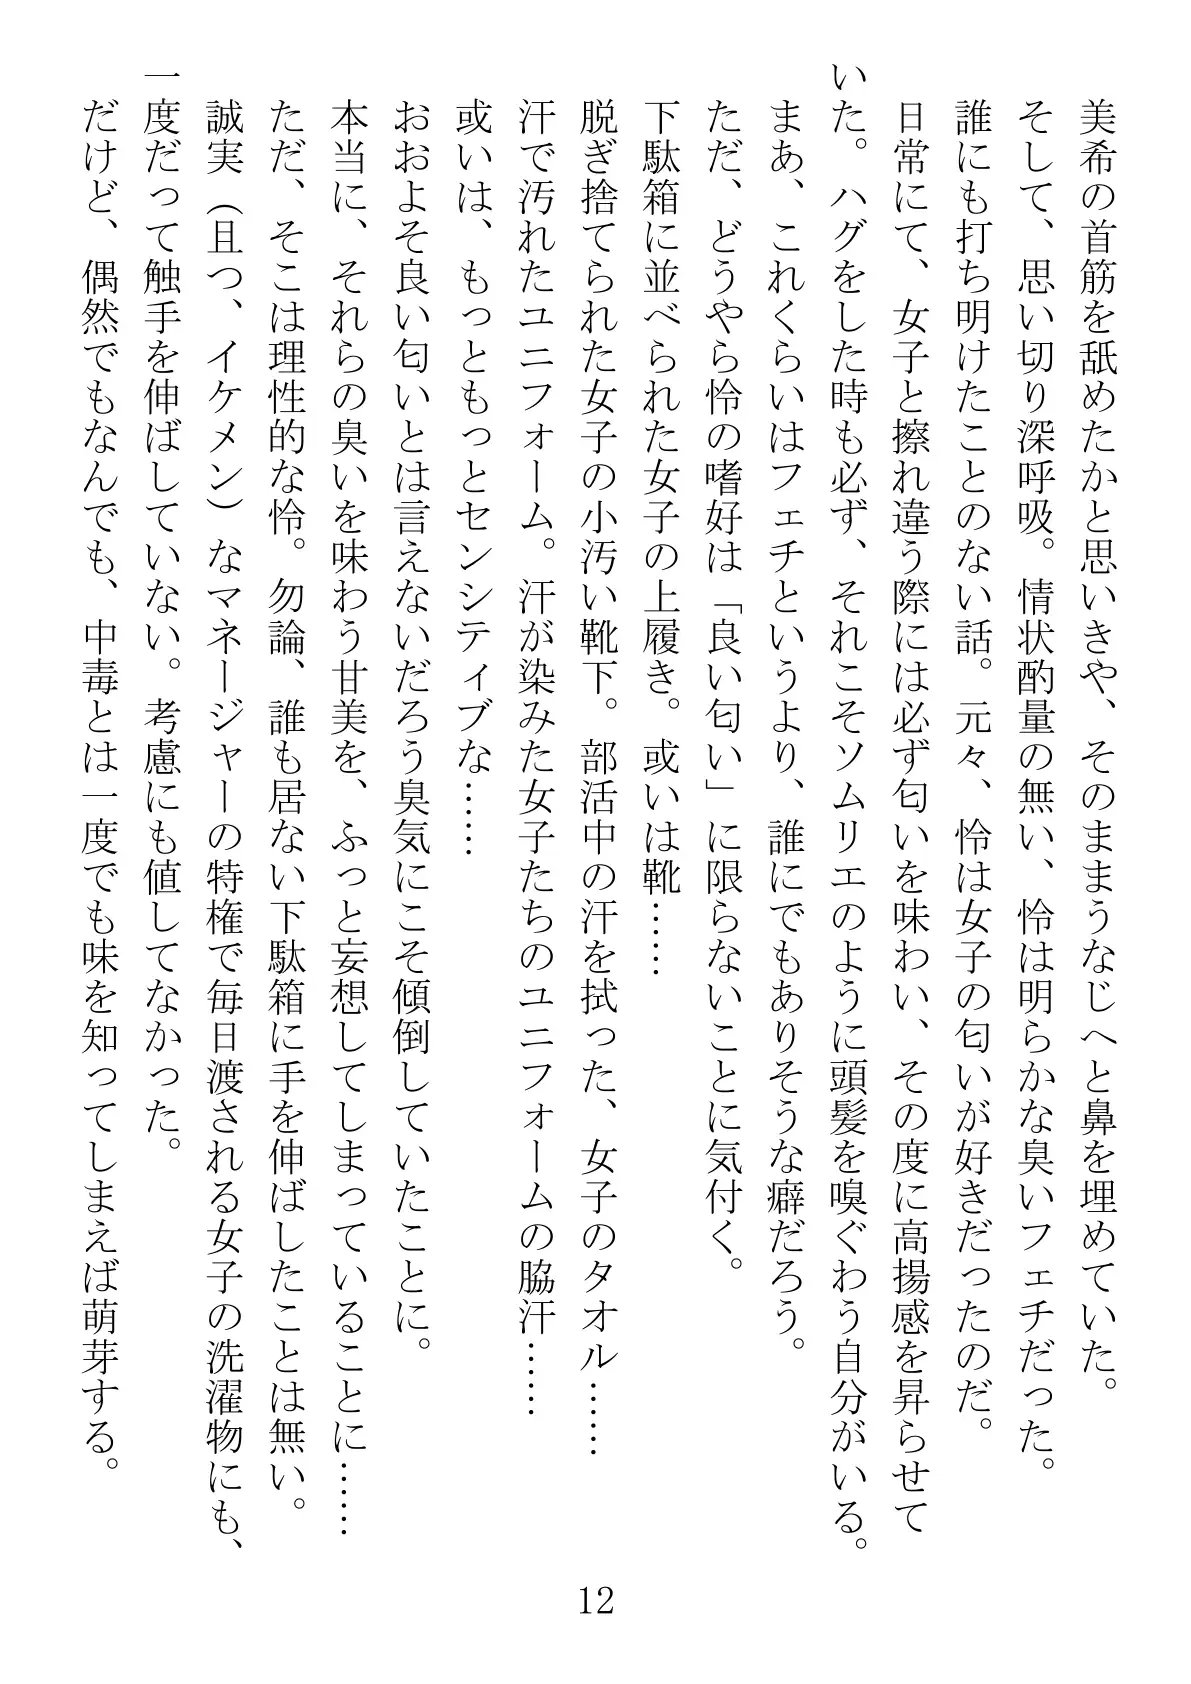 美希の首筋を舐めたかと思いきや、そのままうなじへと鼻を埋めていた。
そして、思い切り深呼吸。情状酌量の無い、怜は明らかな臭いフェチだった。
誰にも打ち明けたことのない話。元々、怜は女子の匂いが好きだったのだ。
日常にて、女子と擦れ違う際には必ず匂いを味わい、その度に高揚感を昇らせて
いた。ハグをした時も必ず、それこそソムリエのように頭髪を嗅ぐわう自分がいる。
まあ、これくらいはフェチというより、誰にでもありそうな癖だろう。
ただ、どうやら怜の嗜好は「良い匂い」に限らないことに気付く。
下駄箱に並べられた女子の上履き。或いは靴……
脱ぎ捨てられた女子の小汚い靴下。部活中の汗を拭った、女子のタオル……
汗で汚れたユニフォーム。汗が染みた女子たちのユニフォームの脇汗……
或いは、もっともっとセンシティブな……
おおよそ良い匂いとは言えないだろう臭気にこそ傾倒していたことに。
本当に、それらの臭いを味わう甘美を、ふっと妄想してしまっていることに……
ただ、そこは理性的な怜。勿論、誰も居ない下駄箱に手を伸ばしたことは無い。
誠実（且つ、イケメン）なマネージャーの特権で毎日渡される女子の洗濯物にも、
一度だって触手を伸ばしていない。考慮にも値してなかった。
だけど、偶然でもなんでも、中毒とは一度でも味を知ってしまえば萌芽する。
12